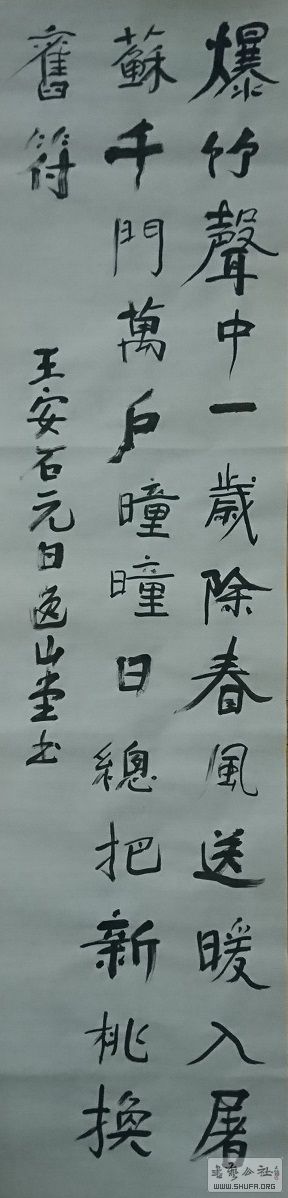 爆竹聲中一歲除春風送暖入屠
蘇千門萬戶曈曈日總把新桃換
舊符
王安石元日逸山堂书
书艺公社
WWW.SHUFA.ORG